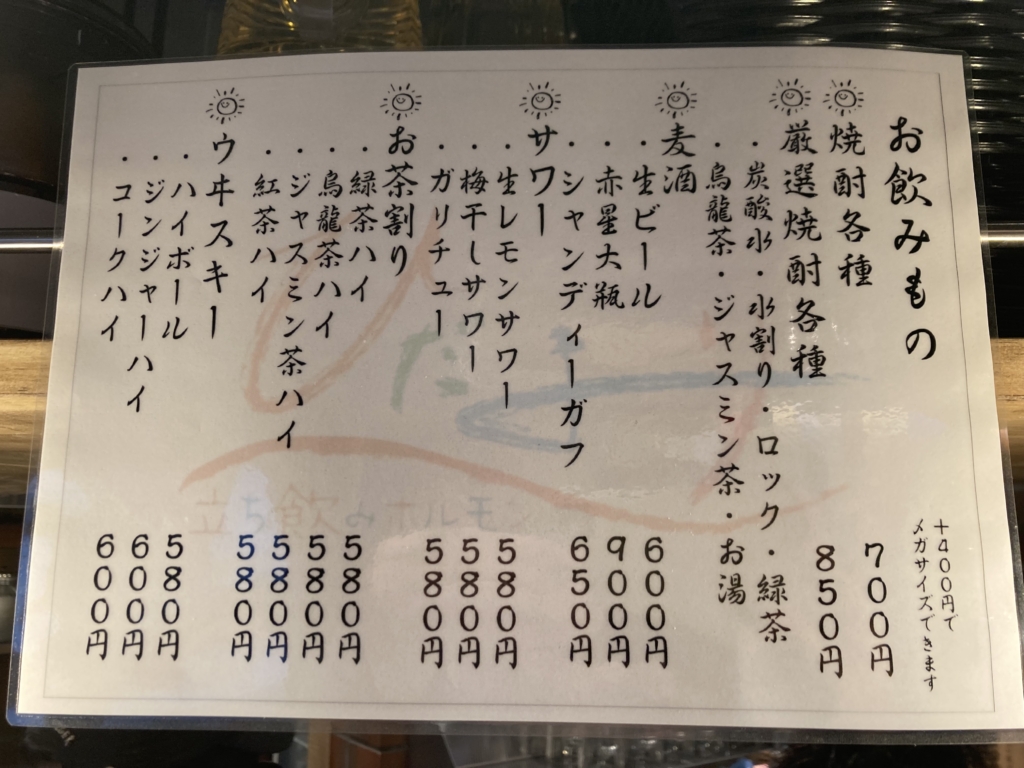 お飲みもの
+400円で
メガサイズできます
焼酎各種 700円
厳選焼酎各種 850円
・炭酸水・水割り・ロック・緑茶
・烏龍茶・ジャスミン茶・お湯
麦酒
・生ビール 600円
・赤星大瓶 900円
・シャンディーガフ 650円
サワー
・生レモンサワー 580円
・梅干しサワー 580円
・ガリチュー 580円
お茶割り
・緑茶ハイ 580円
・烏龍茶ハイ 580円
・ジャスミン茶ハイ 580円
・紅茶ハイ 580円
ウヰスキー
・ハイボール 580円
・ジンジャーハイ 600円
・コークハイ 600円
立ち飲みホルモン